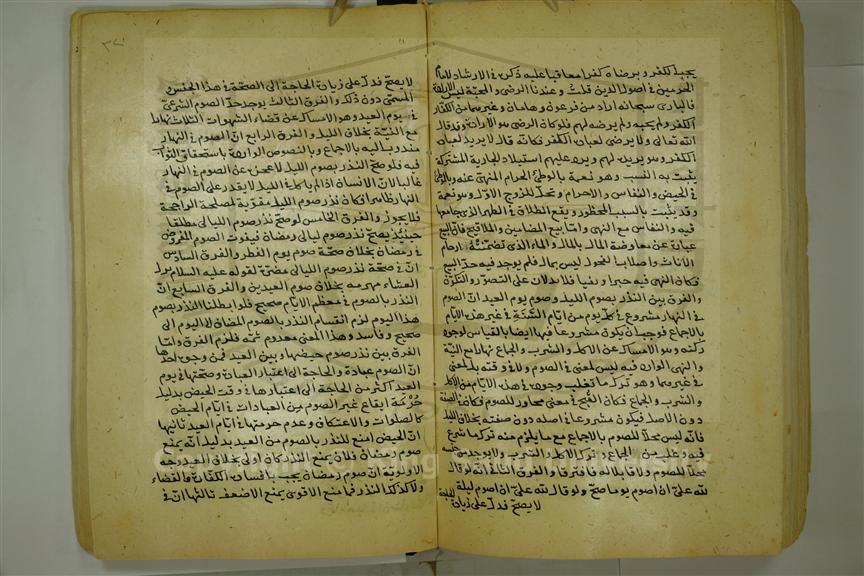 يحبه الكفر ويرضاه كفرا معاقبا عليه ذكره في الارشاد لامام
الحرمين في اصول الدين قلت وعندنا الرضى والمحبة ليس الارادة
فالبارى سبحانه اراد من فرعون وهامان وغيرهما من الكفار
الكفر ولم يحبه ولم يرضه لهم فلو كان الرضى هو الارادة وقد قال
الله تعالى ولا يرضى لعباده الكفر فكانه قال لا يريد لعباده
الكفر وهو يريده لهم ويرد عليهم استيلاد لجارية المشتركة
يثبت به النسب وهو نعمة بالوطئ الحرام المنهى عنه وبالوطئ
في الحيض والنفاس والاحرام وتحل للزوج الاول وهو نعمة
وقد يثبت بالسبب المحظور ويقع الطلاق في الطهر الذي جامعها
فيه والنفاس مع النهى واما بيع المضامين والملاقيح فالبيع
عبارة عن معاوضة المال بالمال والماء الذي تضمنته ارحام
الاناث واصلاب الفحول ليس بمال فلم يوجد فيه حد البيع
فكان النهى فيه خبرا ونفيا فلا يدلان على التصور والتقرر
والفرق بين النذر بصوم الليل وصوم يوم العيد ان الصوم
في النهار مشروع في كل يوم من ايام السنة في غير هذه الايام
بالاجماع فوجب ان يكون مشروعا فيها ايضا بالقياس لوجود
ركنه وهو الامساك عن الاكل والشرب والجماع نهارا مع النية
والنهى الوارد فيه ليس لمعنى في الصوم ولا في وقته بل لمعنى
في غيرهما وهو ترك ما تغلب وجوده في هذه الايام من الاكل
والشرب والجماع فكان القبح في معنى مجاور للصوم فكان في الصفة
دون الاصل فيكون مشروعا في اصله دون صفته بخلاف الليل
فانه ليس محلا للصوم بالاجماع مع ما يلزم منه ترك ما شرع
فيه وطلب من الجماع وترك الاكل والشرب ولا يوجد من جنسه
محلا للصوم ولا قابلا له فافترقا والفرق الثانى انه لو قال
لله على ان اصوم يوما صح ولو قال لله على ان اصوم ليلة
لا يصح فدل على زيادة
لا يصح فدل على زيادة الحاجة الى الصحة في هذا الجنس
المسمى دون ذلك والفرق الثالث يوجد حد الصوم الشرعى
في يوم العيد وهو الامساك عن قضاء الشهوات الثلاث نهارا
مع النية بخلاف الليل والفرق الرابع ان الصوم في النهار
مندوب اليه بالاجماع وبالنصوص الواردة باستحقاق الثواب
فيه فلو صح النذر بصوم الليل لاعجز عن الصوم في النهار
غالبا لان الانسان اذا لم ياكل في الليل لا يقدر على الصوم في
النهار ظاهرا فكان نذر صوم الليل مفوتة لمصلحة الراجحة
فلا يجوز والفرق الخامس لو صح نذر صوم الليالى مطلقا
حينئذ يصح نذر صوم ليالى رمضان فيفوت الصوم المفروض
في رمضان بخلاف صحة صوم يوم الفطر والفرق السادس
ان في صحة نذر صوم الليالى مضرة لقوله عليه السلام ترك
العشاء مهرمة بخلاف صوم العيدين والفرق السابع ان
النذر بالصوم في معظم الايام صحيح فلو ابطلنا النذر بصوم
هذا اليوم لزم انقسام النذر بالصوم المضاف لليوم الى
صحيح وفاسد وهذا المعنى معدوم ثمة فلزم الفرق واما
الفرق بين نذر صوم حيضها وبين العيد فمن وجوه احدها
ان الصوم عبادة والحاجة الى اعتبار العبادة وصحتها في يوم
العيد اكثر من الحاجة الى اعتبارها في وقت الحيض بدليل
حرمة ايقاع غير الصوم من العبادات في ايام الحيض
كالصلوات والاعتكاف وعدم حرمتها في ايام العيد ثانيها
ان الحيض امنع للنذر بالصوم من العيد بدليل انه يمنع
صوم رمضان فلان يمنع النذر كان اولى بخلاف العيد وجه
الاولوية ان صوم رمضان يجب بافساده الكفارة والقضاء
ولا كذلك النذر فما منع الاقوى يمنع الاضعف ثالثها ان في